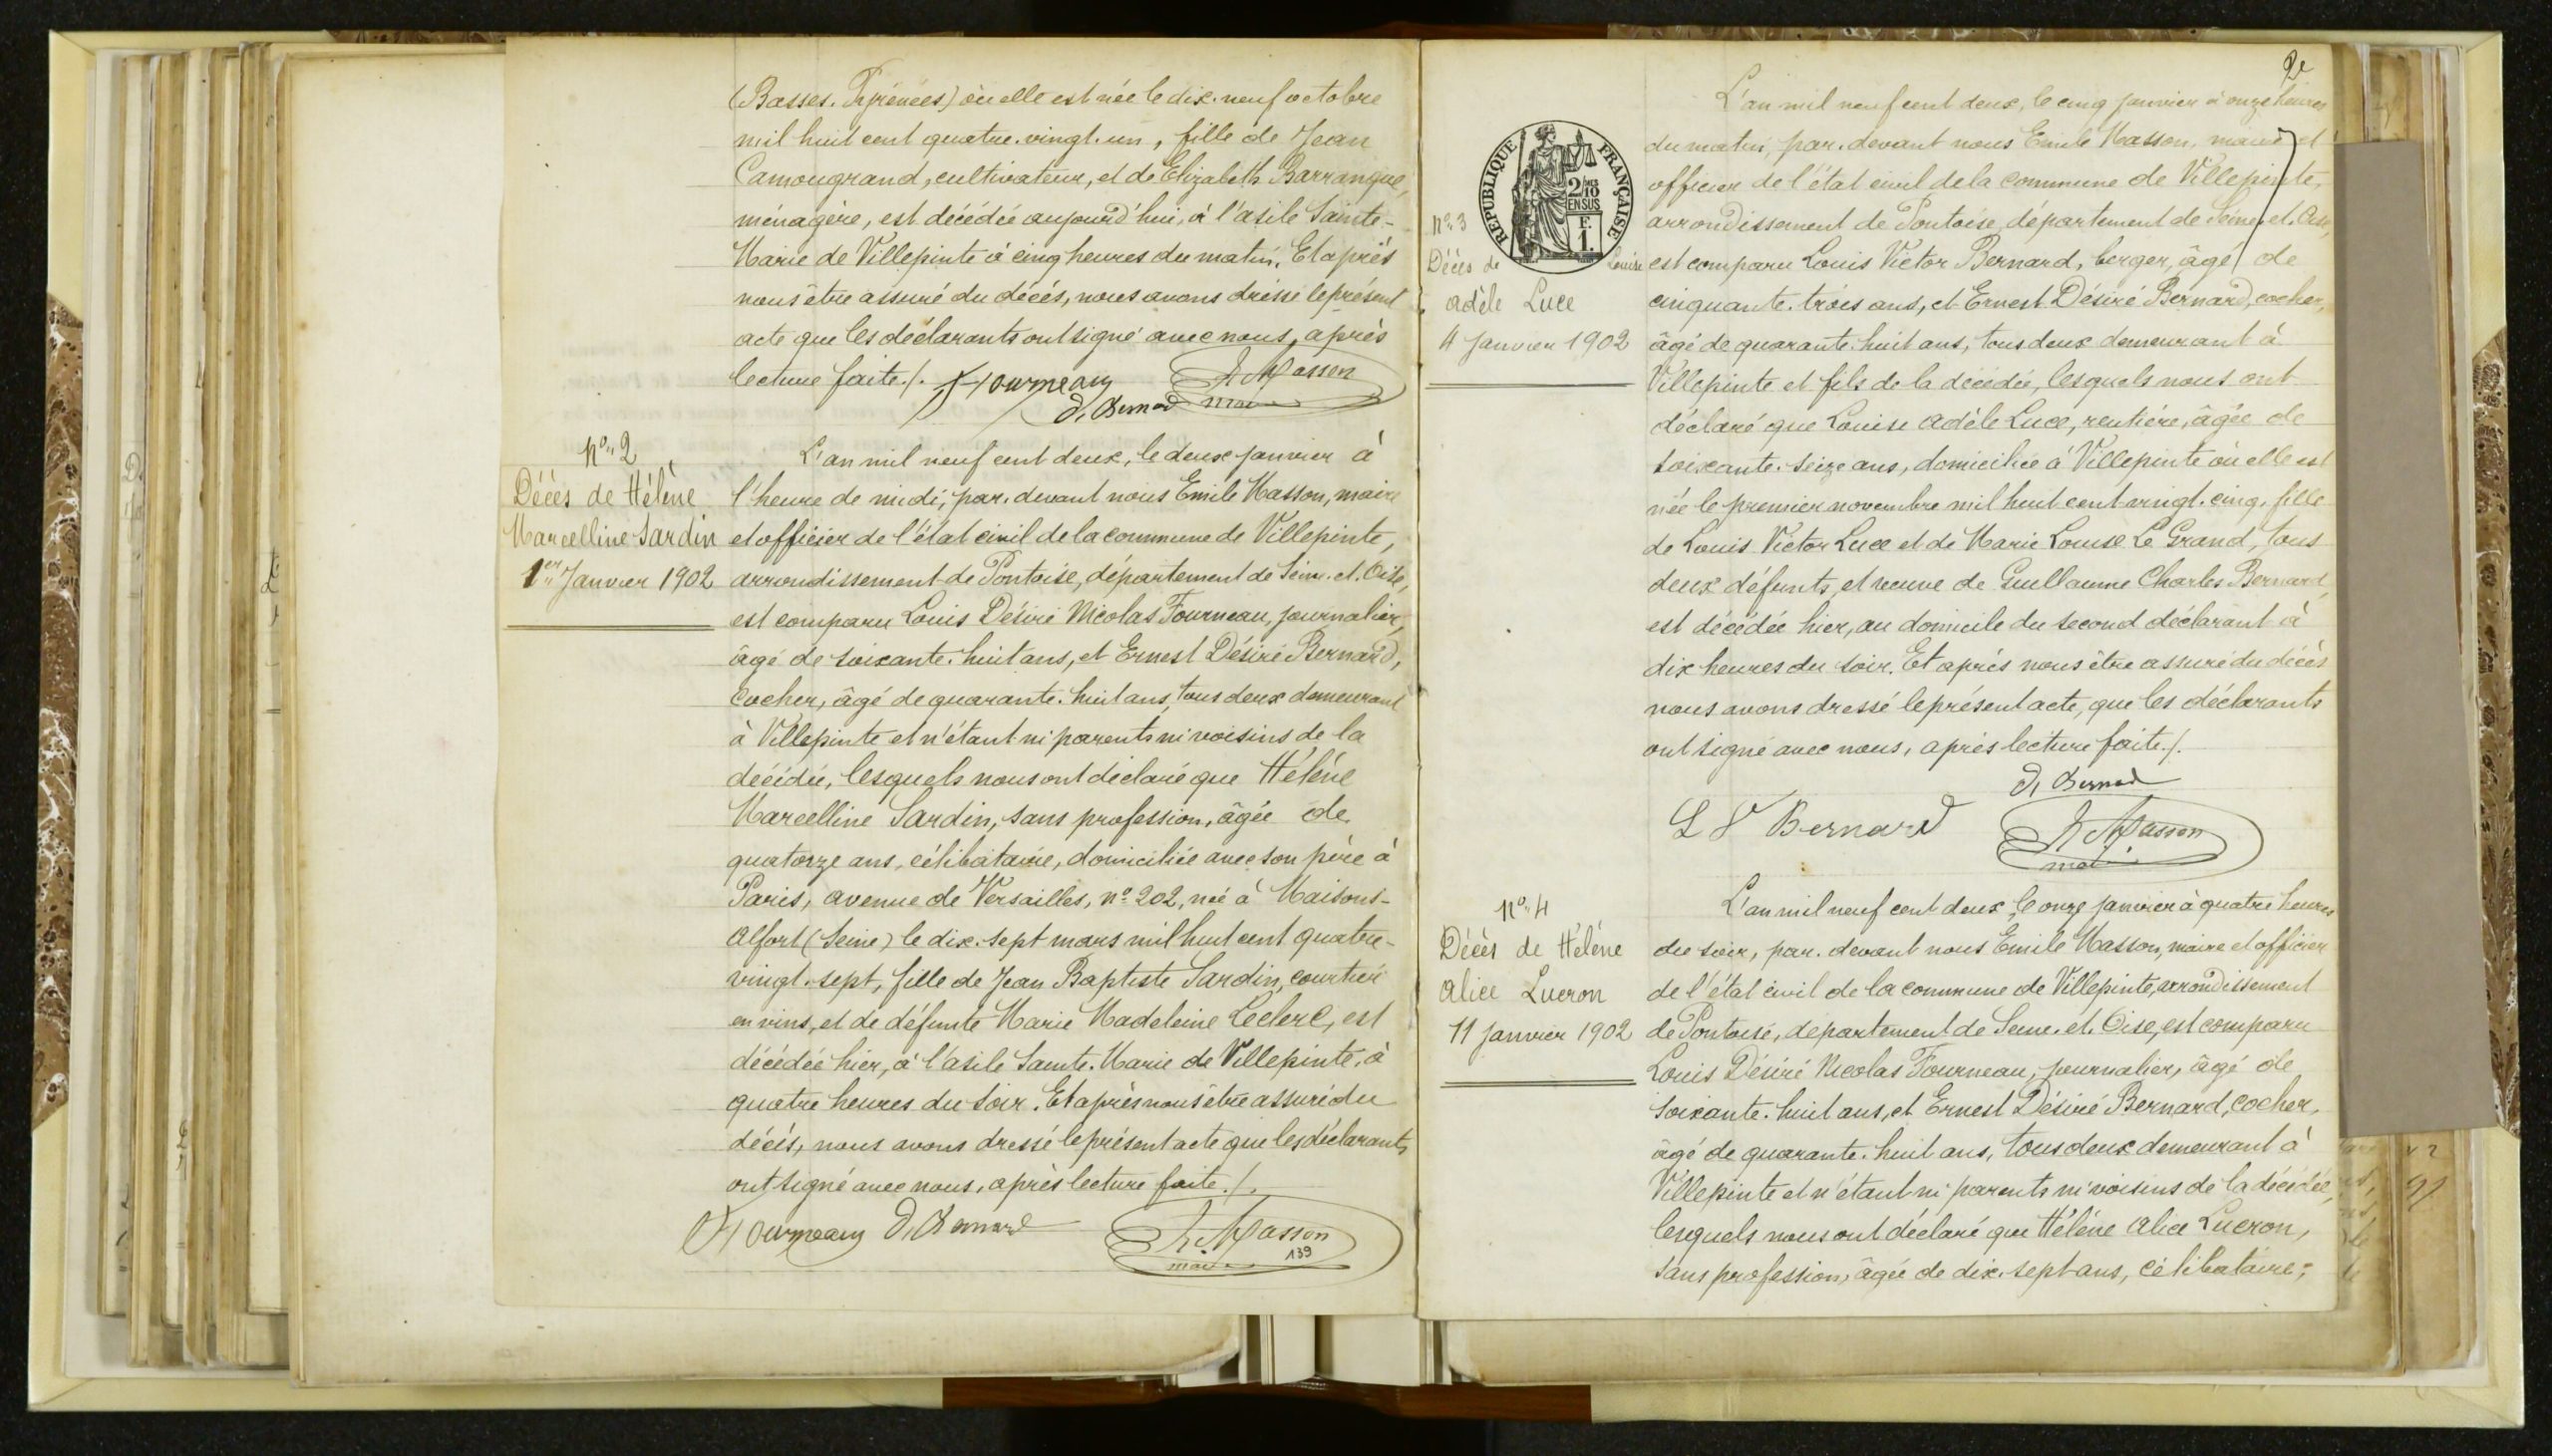 (Basses. Pyrénées) où elle est née le dix. neuf octobre
mil huit cent quatre. vingt. un, fille de Jean
Camougrand, cultivateur, et de Elizabeth Barranque,
ménagère, est décédée aujourd'hui, à l'asile Sainte-
Marie de Villepinte à cinq heures du matin. Et après
nous être assuré du décès, nous avons dressé le présent
acte que les déclarants ont signé avec nous, après
lecture faite./. Fourneau E. Masson
D. Bernard maire
N° 2
Décès de Hélène
Marcelline Sardin
1er Janvier 1902
L'an mil neuf cent deux, le deux janvier à
l'heure de midi, par. devant nous Emile Masson, maire
et officier de l'état civil de la commune de Villepinte,
arrondissement de Pontoise, département de Seine. et. Oise,
est comparu Louis Désiré Nicolas Fourneau, journalier,
âgé de soixante. huit ans, et Ernest Désiré Bernard,
cocher, âgé de quarante. huit ans, tous deux demeurant
à Villepinte et n'étant ni parents ni voisins de la
décédée, lesquels nous ont déclaré que Hélène
Marcelline Sardin, sans profession, âgée de
quatorze ans, célibataire, domiciliée avec son père à
Paris, avenue de Versailles, n° 202, née à Maisons-
Alfort (Seine) le dix. sept mars mil huit cent quatre-
vingt. sept, fille de Jean Baptiste Sardin, courtier
en vins, et de défunte Marie Madeleine Leclerc, est
décédée hier, à l'asile Sainte. Marie de Villepinte, à
quatre heures du soir. Et après nous être assuré du
décès, nous avons dressé le présent acte que les déclarants
ont signé avec nous, après lecture faite./.
Fourneau D. Bernard E. Masson
maire 139
2e
RÉPUBLIQUE FRANÇAISE
2/10 EN SUS
F. 1.
N° 3
Décès de Louise
Adèle Luce
4 Janvier 1902
L'an mil neuf cent deux, le cinq janvier à onze heures
du matin, par. devant nous Emile Masson, maire et
officier de l'état civil de la commune de Villepinte,
arrondissement de Pontoise, département de Seine. et. Oise,
est comparu Louis Victor Bernard, berger, âgé de
cinquante. trois ans, et Ernest Désiré Bernard, cocher,
âgé de quarante. huit ans, tous deux demeurant à
Villepinte et fils de la décédée, lesquels nous ont
déclaré que Louise Adèle Luce, rentière, âgée de
soixante. seize ans, domiciliée à Villepinte où elle est
née le premier novembre mil huit cent vingt. cinq, fille
de Louis Victor Luce et de Marie Louise Le Grand, tous
deux défunts, et veuve de Guillaume Charles Bernard,
est décédée hier, au domicile du second déclarant à
dix heures du soir. Et après nous être assuré du décès
nous avons dressé le présent acte, que les déclarants
ont signé avec nous, après lecture faite./.
D. Bernard
L V Bernard E. Masson
maire
N° 4
Décès de Hélène
Alice Lucron
11 Janvier 1902
L'an mil neuf cent deux, le onze janvier à quatre heures
du soir, par. devant nous Emile Masson, maire et officier
de l'état civil de la commune de Villepinte, arrondissement
de Pontoise, département de Seine. et. Oise, est comparu
Louis Désiré Nicolas Fourneau, journalier, âgé de
soixante. huit ans, et Ernest Désiré Bernard, cocher,
âgé de quarante. huit ans, tous deux demeurant à
Villepinte et n'étant ni parents ni voisins de la décédée,
lesquels nous ont déclaré que Hélène Alice Lucron,
sans profession, âgée de dix. sept ans, célibataire,